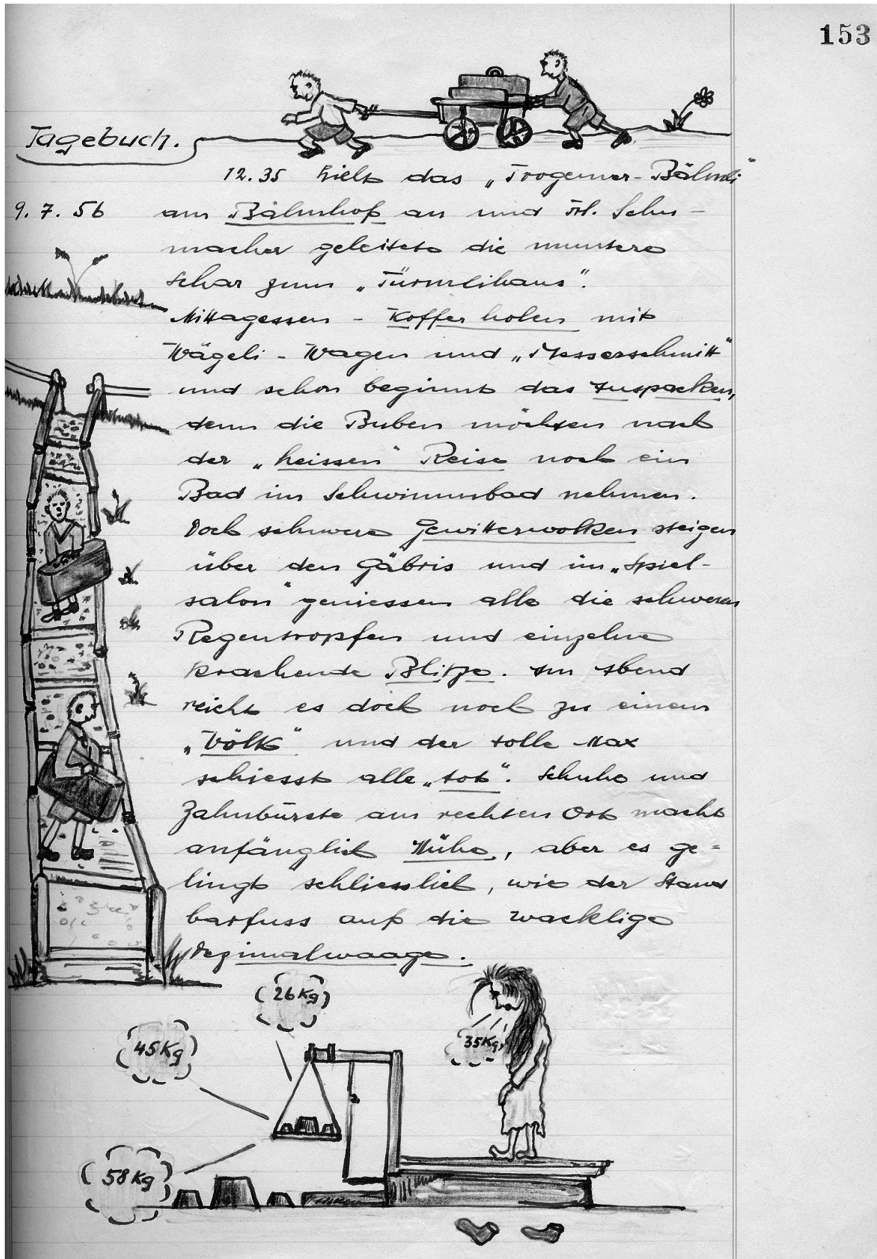 153
Tagebuch.
12.35 hielt das „Trogener-Bähnli"
9.7.56 am Bahnhof an und Frl. Schu-
macher geleitete die muntere
Schar zum „Türmlihaus".
Mittagessen - Koffer holen mit
Wägeli-Wagen und „Messerschmitt"
und schon beginnt das Auspacken,
denn die Buben möchten nach
der „heissen" Reise noch ein
Bad im Schwimmbad nehmen.
Doch schwere Gewitterwolken steigen
über den Gäbris und im „Spiel-
salon" geniessen alle die schweren
Regentropfen und einzelne
krachende Blitze. Am Abend
reicht es doch noch zu einem
„Völk" und der tolle Max
schiesst alle „tot". Schuhe und
Zahnbürste am rechten Ort macht
anfänglich Mühe, aber es ge-
lingt schliesslich, wie der Stand
barfuss auf die wacklige
Dezimalwaage.
26 Kg
45 Kg
35 Kg
58 Kg